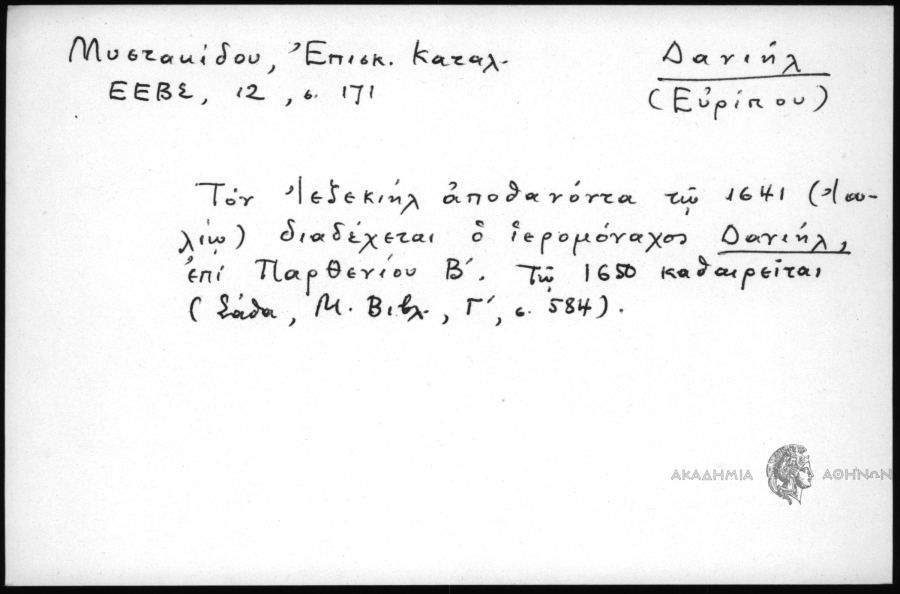 Μυστακίδου, Ἐπισκ. Καταλ.
ΕΕΒΣ, 12, σ. 171
Δανιήλ
(Εὐρίπου)
Τόν Ἰεζεκιήλ ἀποθανόντα τῷ 1641 (Ἰου-
λίῳ) διαδέχεται ὁ ἱερομόναχος Δανιήλ,
ἐπί Παρθενίου Β΄. Τῷ 1650 καθαιρεῖται
(Σάθα, Μ. Βιβλ., Γ΄, σ. 584).
ΑΚΑΔΗΜΙΑ ΑΘΗΝΩΝ